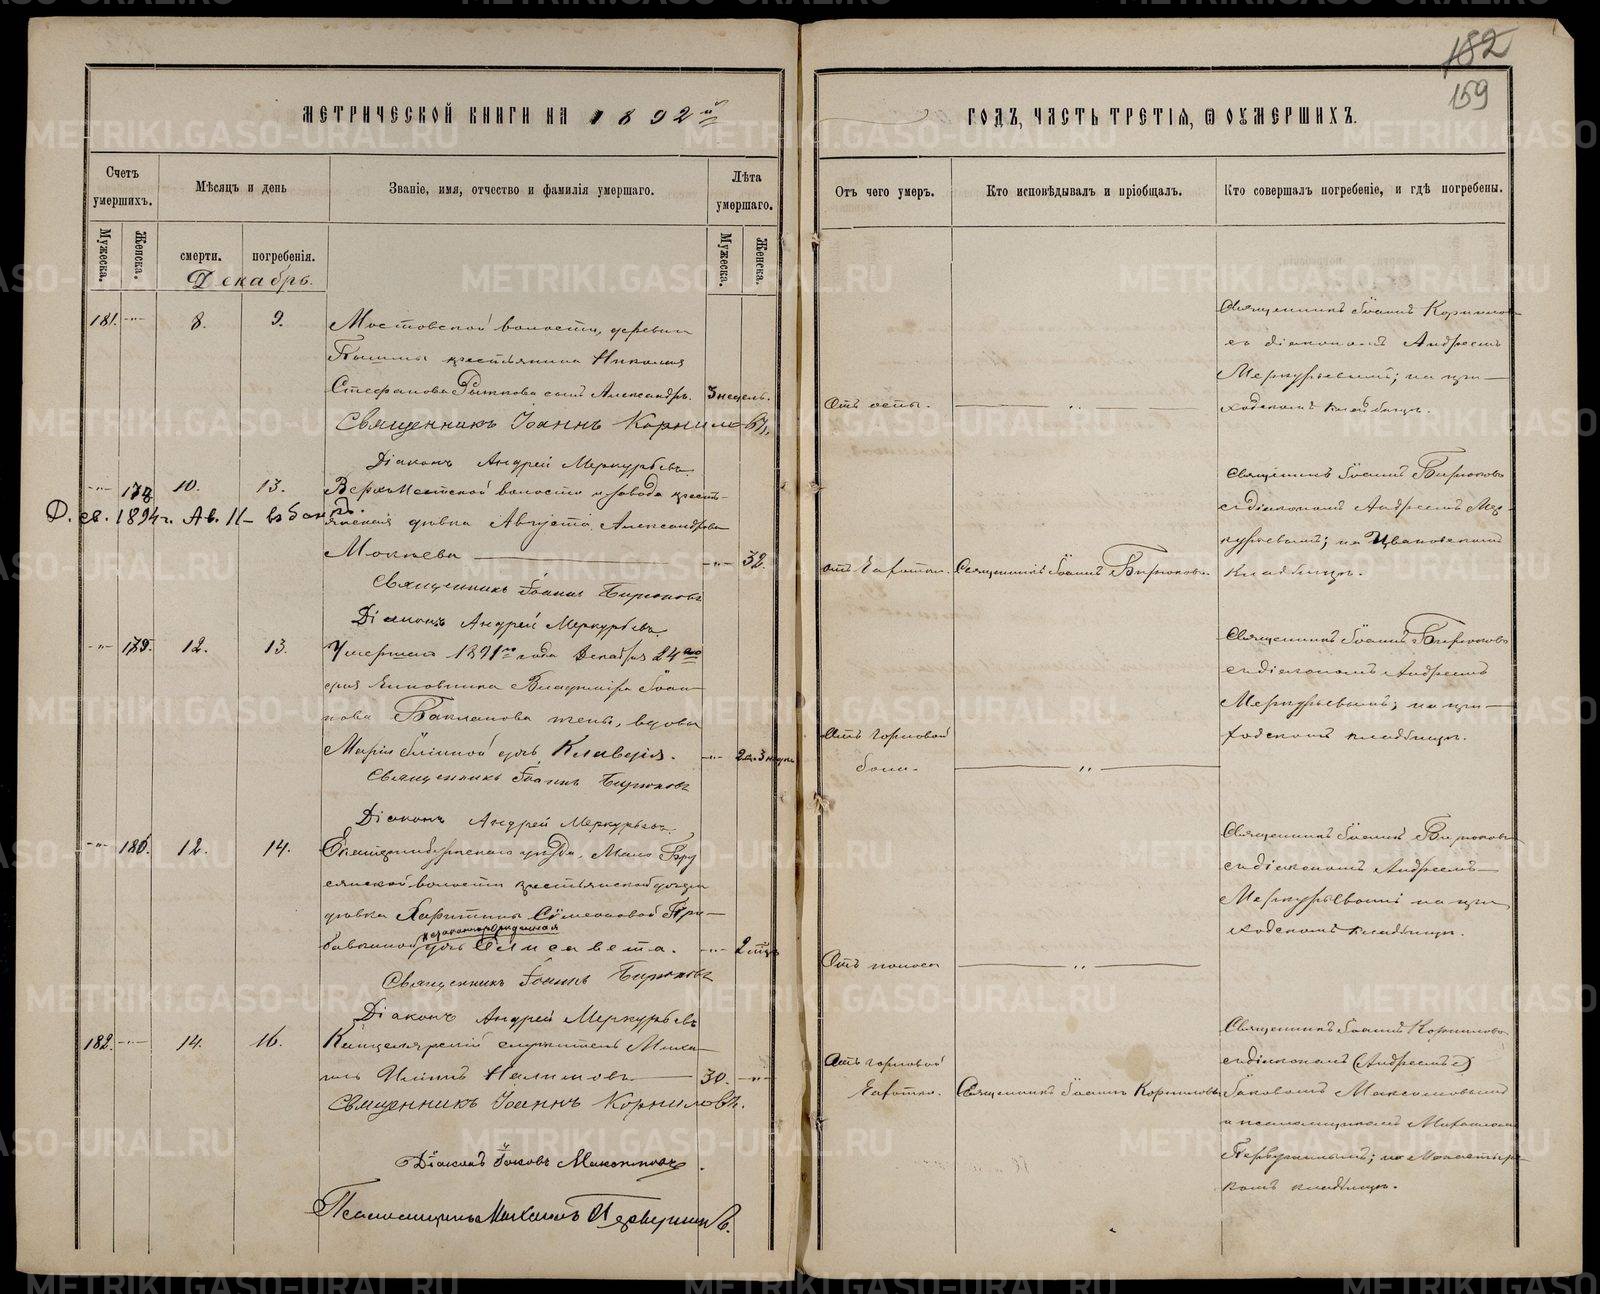 182
159
МЕТРИЧЕСКОЙ КНИГИ НА 1892й
ГОДЪ, ЧАСТЬ ТРЕТІЯ, Ѿ ОУМЕРШИХЪ.
Счетъ умершихъ.
Мѣсяцъ и день
Званіе, имя, отчество и фамилія умершаго.
Лѣта умершаго.
Отъ чего умеръ.
Кто исповѣдывалъ и пріобщалъ.
Кто совершалъ погребеніе, и гдѣ погребены.
Мужеска.
Женска.
смерти.
погребенія.
Мужеска.
Женска.
Декабрь.
181. -"- 8. 9.
Мостовской волости, деревни
крестьянина Николая
Стефанова Рыжкова сынъ Александръ. 3 недѣль.
Священникъ Іоаннъ Корниловъ.
Діаконъ Андрей Меркурьевъ
Отъ оспы.
Священникъ Іоаннъ Корнилов
съ діакономъ Андреемъ
Меркурьевымъ; на при-
ходскомъ кладбищѣ.
-"- 178 10. 13.
волости и завода кресть-
Д. св. 1894 г. Ав. 11
янская дѣвка Августа Александрова
Мокѣева -"- 32.
Священникъ Іоаннъ Бирюковъ
Діаконъ Андрей Меркурьевъ
отъ чахотки. Священникъ Іоаннъ Бирюковъ.
Священникъ Іоаннъ Бирюковъ
съ діакономъ Андреемъ Мер-
курьевымъ; на Ивановскомъ
кладбищѣ.
-"- 179. 12. 13.
Умершаго 1891го года Декабря 24го
дня чиновника Владиміра Іоан-
нова Бакланова жены, вдовы
Маріи дочь Клавдія. -"-
Священникъ Іоаннъ Бирюковъ
Діаконъ Андрей Меркурьевъ
Отъ горловой
боли.
Священникъ Іоаннъ Бирюковъ
съ діакономъ Андреемъ
Меркурьевымъ; на при-
ходскомъ кладбищѣ.
-"- 180. 12. 14.
Екатеринбургскаго уѣзда, Мало Бру
сянской волости крестьянской дочери
дѣвки Харитины Сѵмеоновой
незаконнорожденная
дочь Елисавета. -"-
Священникъ Іоаннъ Бирюковъ
Діаконъ Андрей Меркурьевъ
Отъ поноса
Священникъ Іоаннъ Бирюковъ
съ діакономъ Андреемъ
Меркурьевымъ на при
ходскомъ кладбищѣ.
182. -"- 14. 16.
Канцелярскій служитель Миха-
илъ Налимовъ 30. -"-
Священникъ Іоаннъ Корниловъ.
Діаконъ Іаковъ Максимовъ.
Псаломщикъ Михаилъ Первушинъ.
Отъ горловой
чахотки. Священникъ Іоаннъ Корниловъ
Священникъ Іоаннъ Корниловъ
съ діакономъ (Андреемъ)
Іаковомъ Максимовымъ
и псаломщикомъ Михаиломъ
Первушинымъ; на Монастыр-
скомъ кладбищѣ.
METRIKI.GASO-URAL.RU